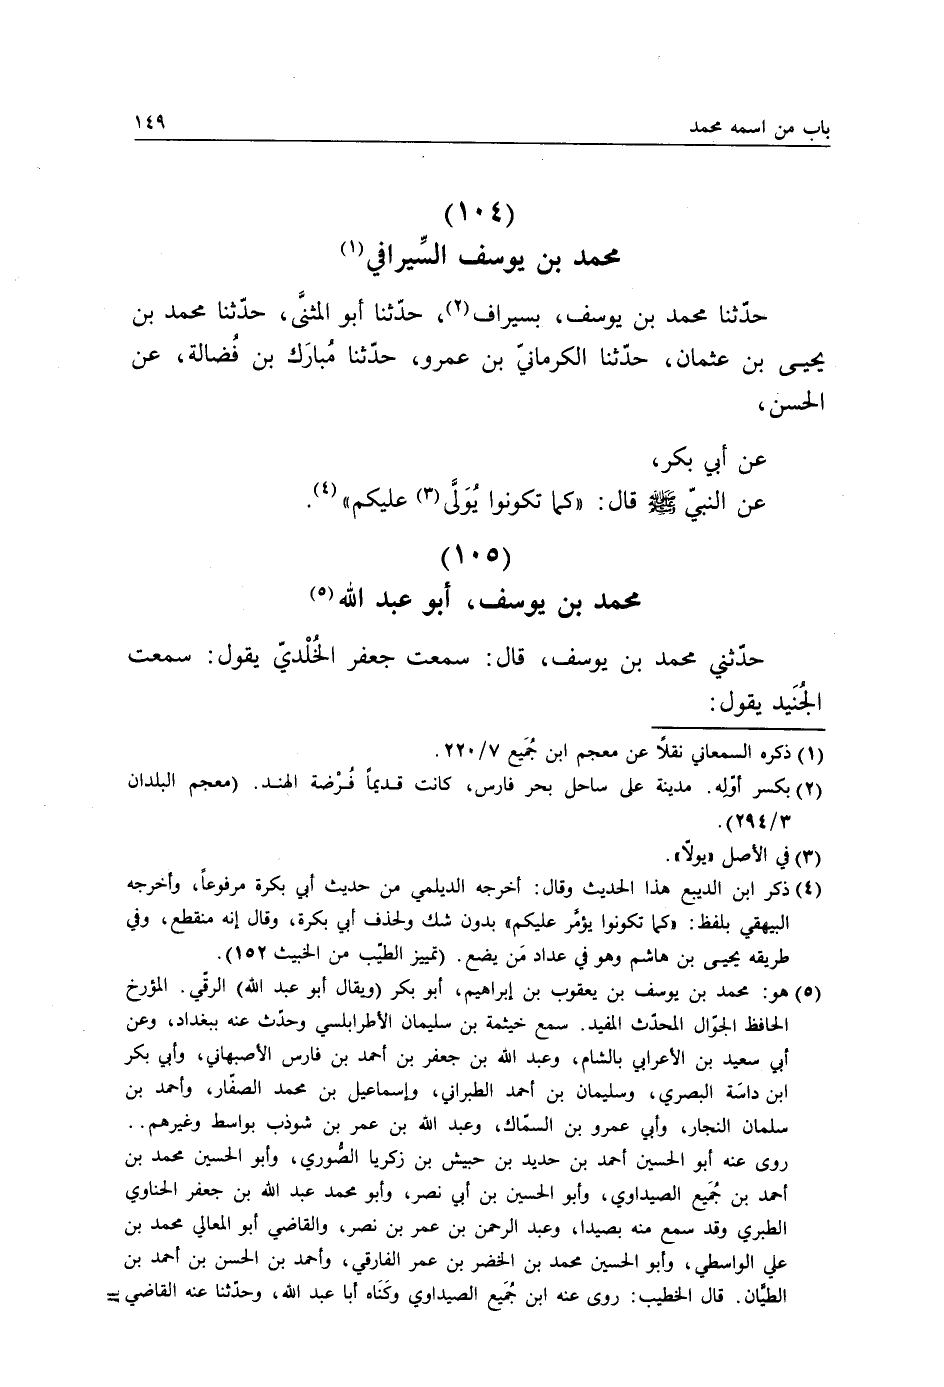 باب من اسمه محمد ١٤٩
(١٠٤)
محمد بن يوسف السِّيرافي(١)
حدّثنا محمد بن يوسف، بسيراف(٢)، حدّثنا أبو المثنَّى، حدّثنا محمد بن
يحيـى بن عثمان، حدّثنا الكرمانيّ بن عمرو، حدّثنا مُبارَك بن فُضالة، عن
الحسن،
عن أبي بكر،
عن النبيّ ﷺ قال: «كما تكونوا يُوَلَّى(٣) عليكم»(٤).
(١٠٥)
محمد بن يوسف، أبو عبد الله(٥)
حدّثني محمد بن يوسف، قال: سمعت جعفر الخُلْديّ يقول: سمعت
الجُنَيد يقول:
(١) ذكره السمعاني نقلاً عن معجم ابن جُمَيع ٢٢٠/٧.
(٢) بكسر أوّلِه. مدينة على ساحل بحر فارس، كانت قديماً فُرْضة الهند. (معجم البلدان
٢٩٤/٣).
(٣) في الأصل «يولّا».
(٤) ذكر ابن الديبع هذا الحديث وقال: أخرجه الديلمي من حديث أبي بكرة مرفوعاً، وأخرجه
البيهقي بلفظ: «كما تكونوا يؤمَّر عليكم» بدون شك ولحذف أبي بكرة، وقال إنه منقطع، وفي
طريقه يحيـى بن هاشم وهو في عداد مَن يضع. (تمييز الطيّب من الخبيث ١٥٢).
(٥) هو: محمد بن يوسف بن يعقوب بن إبراهيم، أبو بكر (ويقال أبو عبد الله) الرقّي. المؤرخ
الحافظ الجوّال المحدّث المفيد. سمع خيثمة بن سليمان الأطرابلسي وحدّث عنه ببغداد، وعن
أبي سعيد بن الأعرابي بالشام، وعبد الله بن جعفر بن أحمد بن فارس الأصبهاني، وأبي بكر
ابن داسَة البصري، وسليمان بن أحمد الطبراني، وإسماعيل بن محمد الصفّار، وأحمد بن
سلمان النجار، وأبي عمرو بن السمّاك، وعبد الله بن عمر بن شوذب بواسط وغيرهم..
روى عنه أبو الحسين أحمد بن حديد بن حبيش بن زكريا الصُّوري، وأبو الحسين محمد بن
أحمد بن جُمَيع الصيداوي، وأبو الحسين بن أبي نصر، وأبو محمد عبد الله بن جعفر الحناوي
الطبري وقد سمع منه بصيدا، وعبد الرحمن بن عمر بن نصر، والقاضي أبو المعالي محمد بن
علي الواسطي، وأبو الحسين محمد بن الخضر بن عمر الفارقي، وأحمد بن الحسن بن أحمد بن
الطيَّان. قال الخطيب: روى عنه ابن جُمَيع الصيداوي وكَنَاه أبا عبد الله، وحدّثنا عنه القاضي =